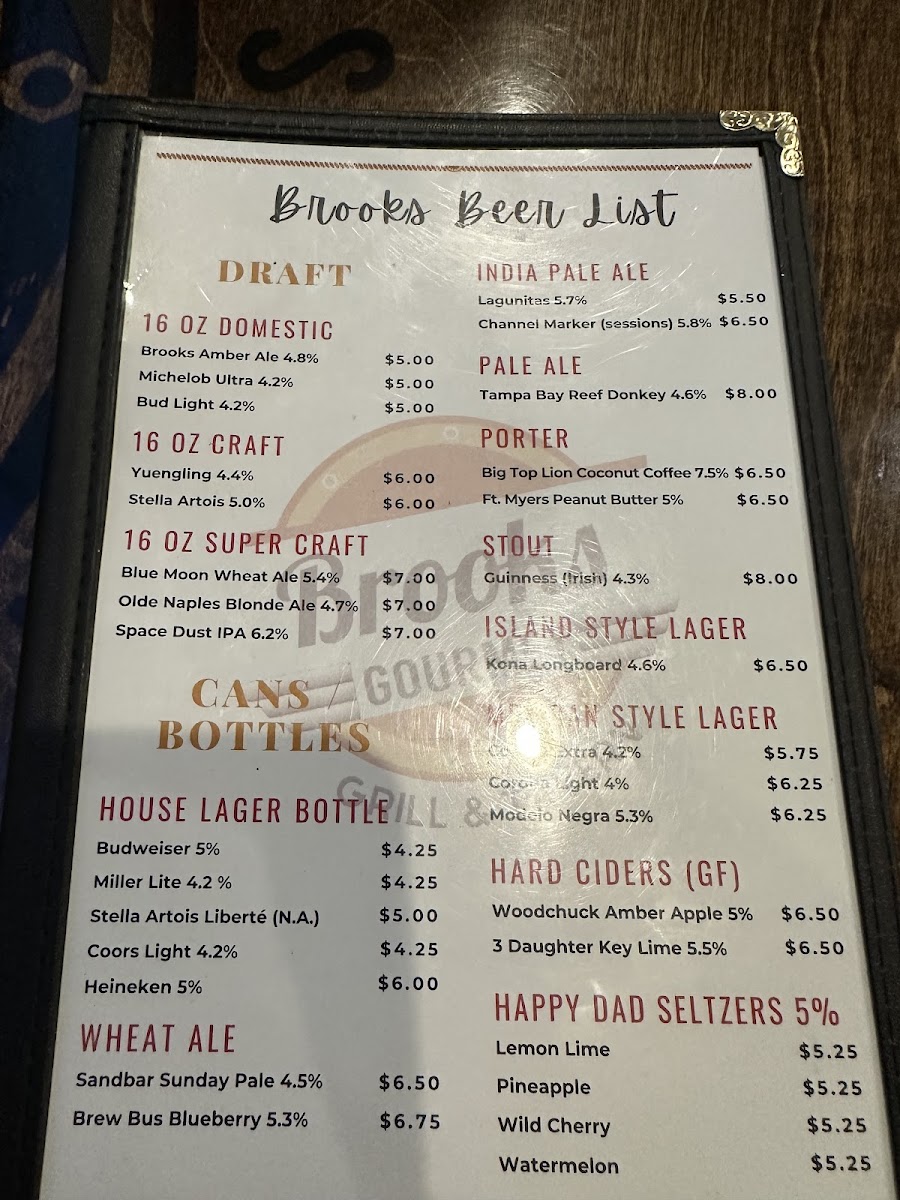 S
Brooks Beer List
DRAFT
16 OZ DOMESTIC
Brooks Amber Ale 4.8% $5.00
Michelob Ultra 4.2% $5.00
Bud Light 4.2% $5.00
16 OZ CRAFT
Yuengling 4.4% $6.00
Stella Artois 5.0% $6.00
16 OZ SUPER CRAFT
Blue Moon Wheat Ale 5.4% $7.00
Olde Naples Blonde Ale 4.7% $7.00
Space Dust IPA 6.2% $7.00
CANS /
BOTTLES
HOUSE LAGER BOTTLE
Budweiser 5% $4.25
Miller Lite 4.2 % $4.25
Stella Artois Liberté (N.A.) $5.00
Coors Light 4.2% $4.25
Heineken 5% $6.00
WHEAT ALE
Sandbar Sunday Pale 4.5% $6.50
Brew Bus Blueberry 5.3% $6.75
INDIA PALE ALE
Lagunitas 5.7% $5.50
Channel Marker (sessions) 5.8% $6.50
PALE ALE
Tampa Bay Reef Donkey 4.6% $8.00
PORTER
Big Top Lion Coconut Coffee 7.5% $6.50
Ft. Myers Peanut Butter 5% $6.50
STOUT
Guinness (Irish) 4.3% $8.00
ISLAND STYLE LAGER
Kona Longboard 4.6% $6.50
STYLE LAGER
Extra 4.2% $5.75
Corona Light 4% $6.25
Modelo Negra 5.3% $6.25
HARD CIDERS (GF)
Woodchuck Amber Apple 5% $6.50
3 Daughter Key Lime 5.5% $6.50
HAPPY DAD SELTZERS 5%
Lemon Lime $5.25
Pineapple $5.25
Wild Cherry $5.25
Watermelon $5.25
Brooks
GRILL &